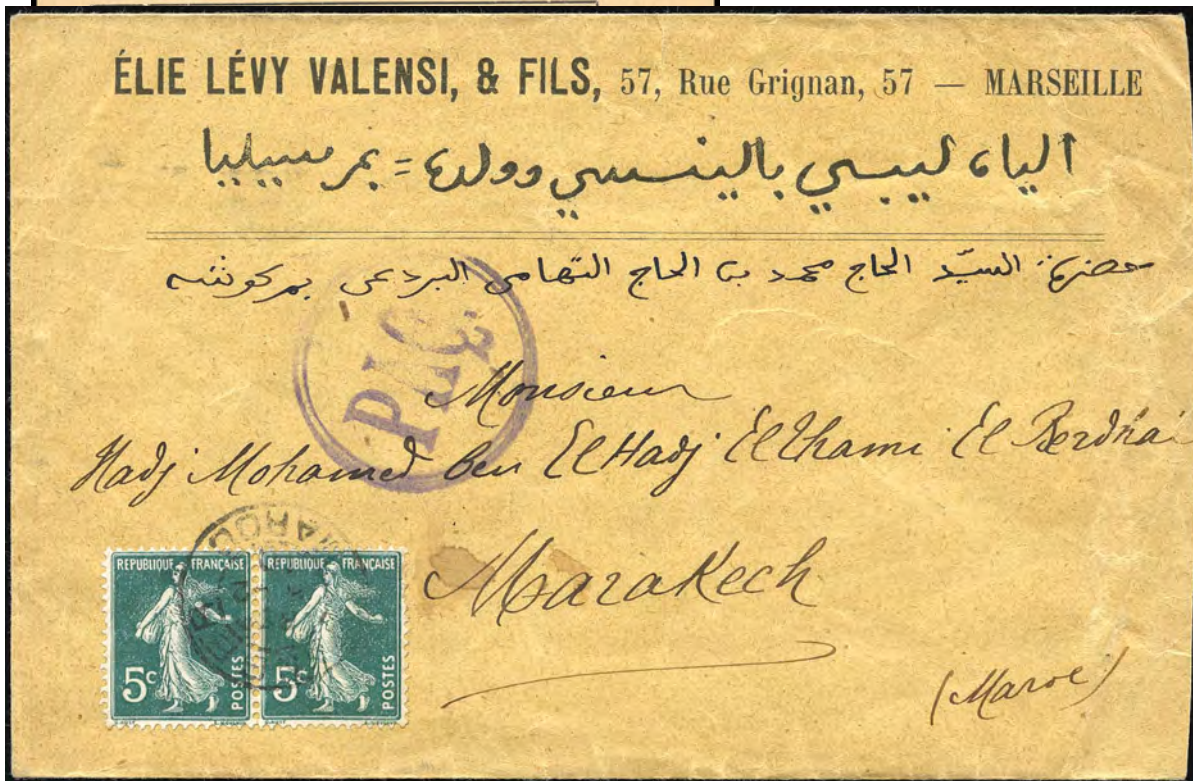 ÉLIE LÉVY VALENSI, & FILS, 57, Rue Grignan, 57 — MARSEILLE
الياه ليبسي بالينسي وولده = بمرسيليا
حضرة السيّد الحاج محمد بن الحاج التهامى البردعى بمركوشه
PAQ
Monsieur
Hadj Mohamed Ben El Hadj El Thami El Berdhai
Marakech
(Maroc)
MAROC
REPUBLIQUE FRANÇAISE REPUBLIQUE FRANÇAISE
5c POSTES 5c POSTES